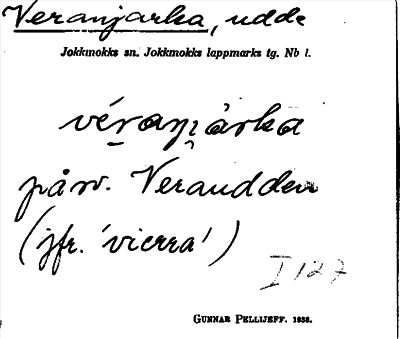 Veranjarka, udde
Jokkmokks sn. Jokkmokks lappmarks tg. Nb l.
véraŋi̯årka
på sv. Veraudden
(jfr. 'vierra')
I 127
GUNNAR PELLIJEFF. 1938.